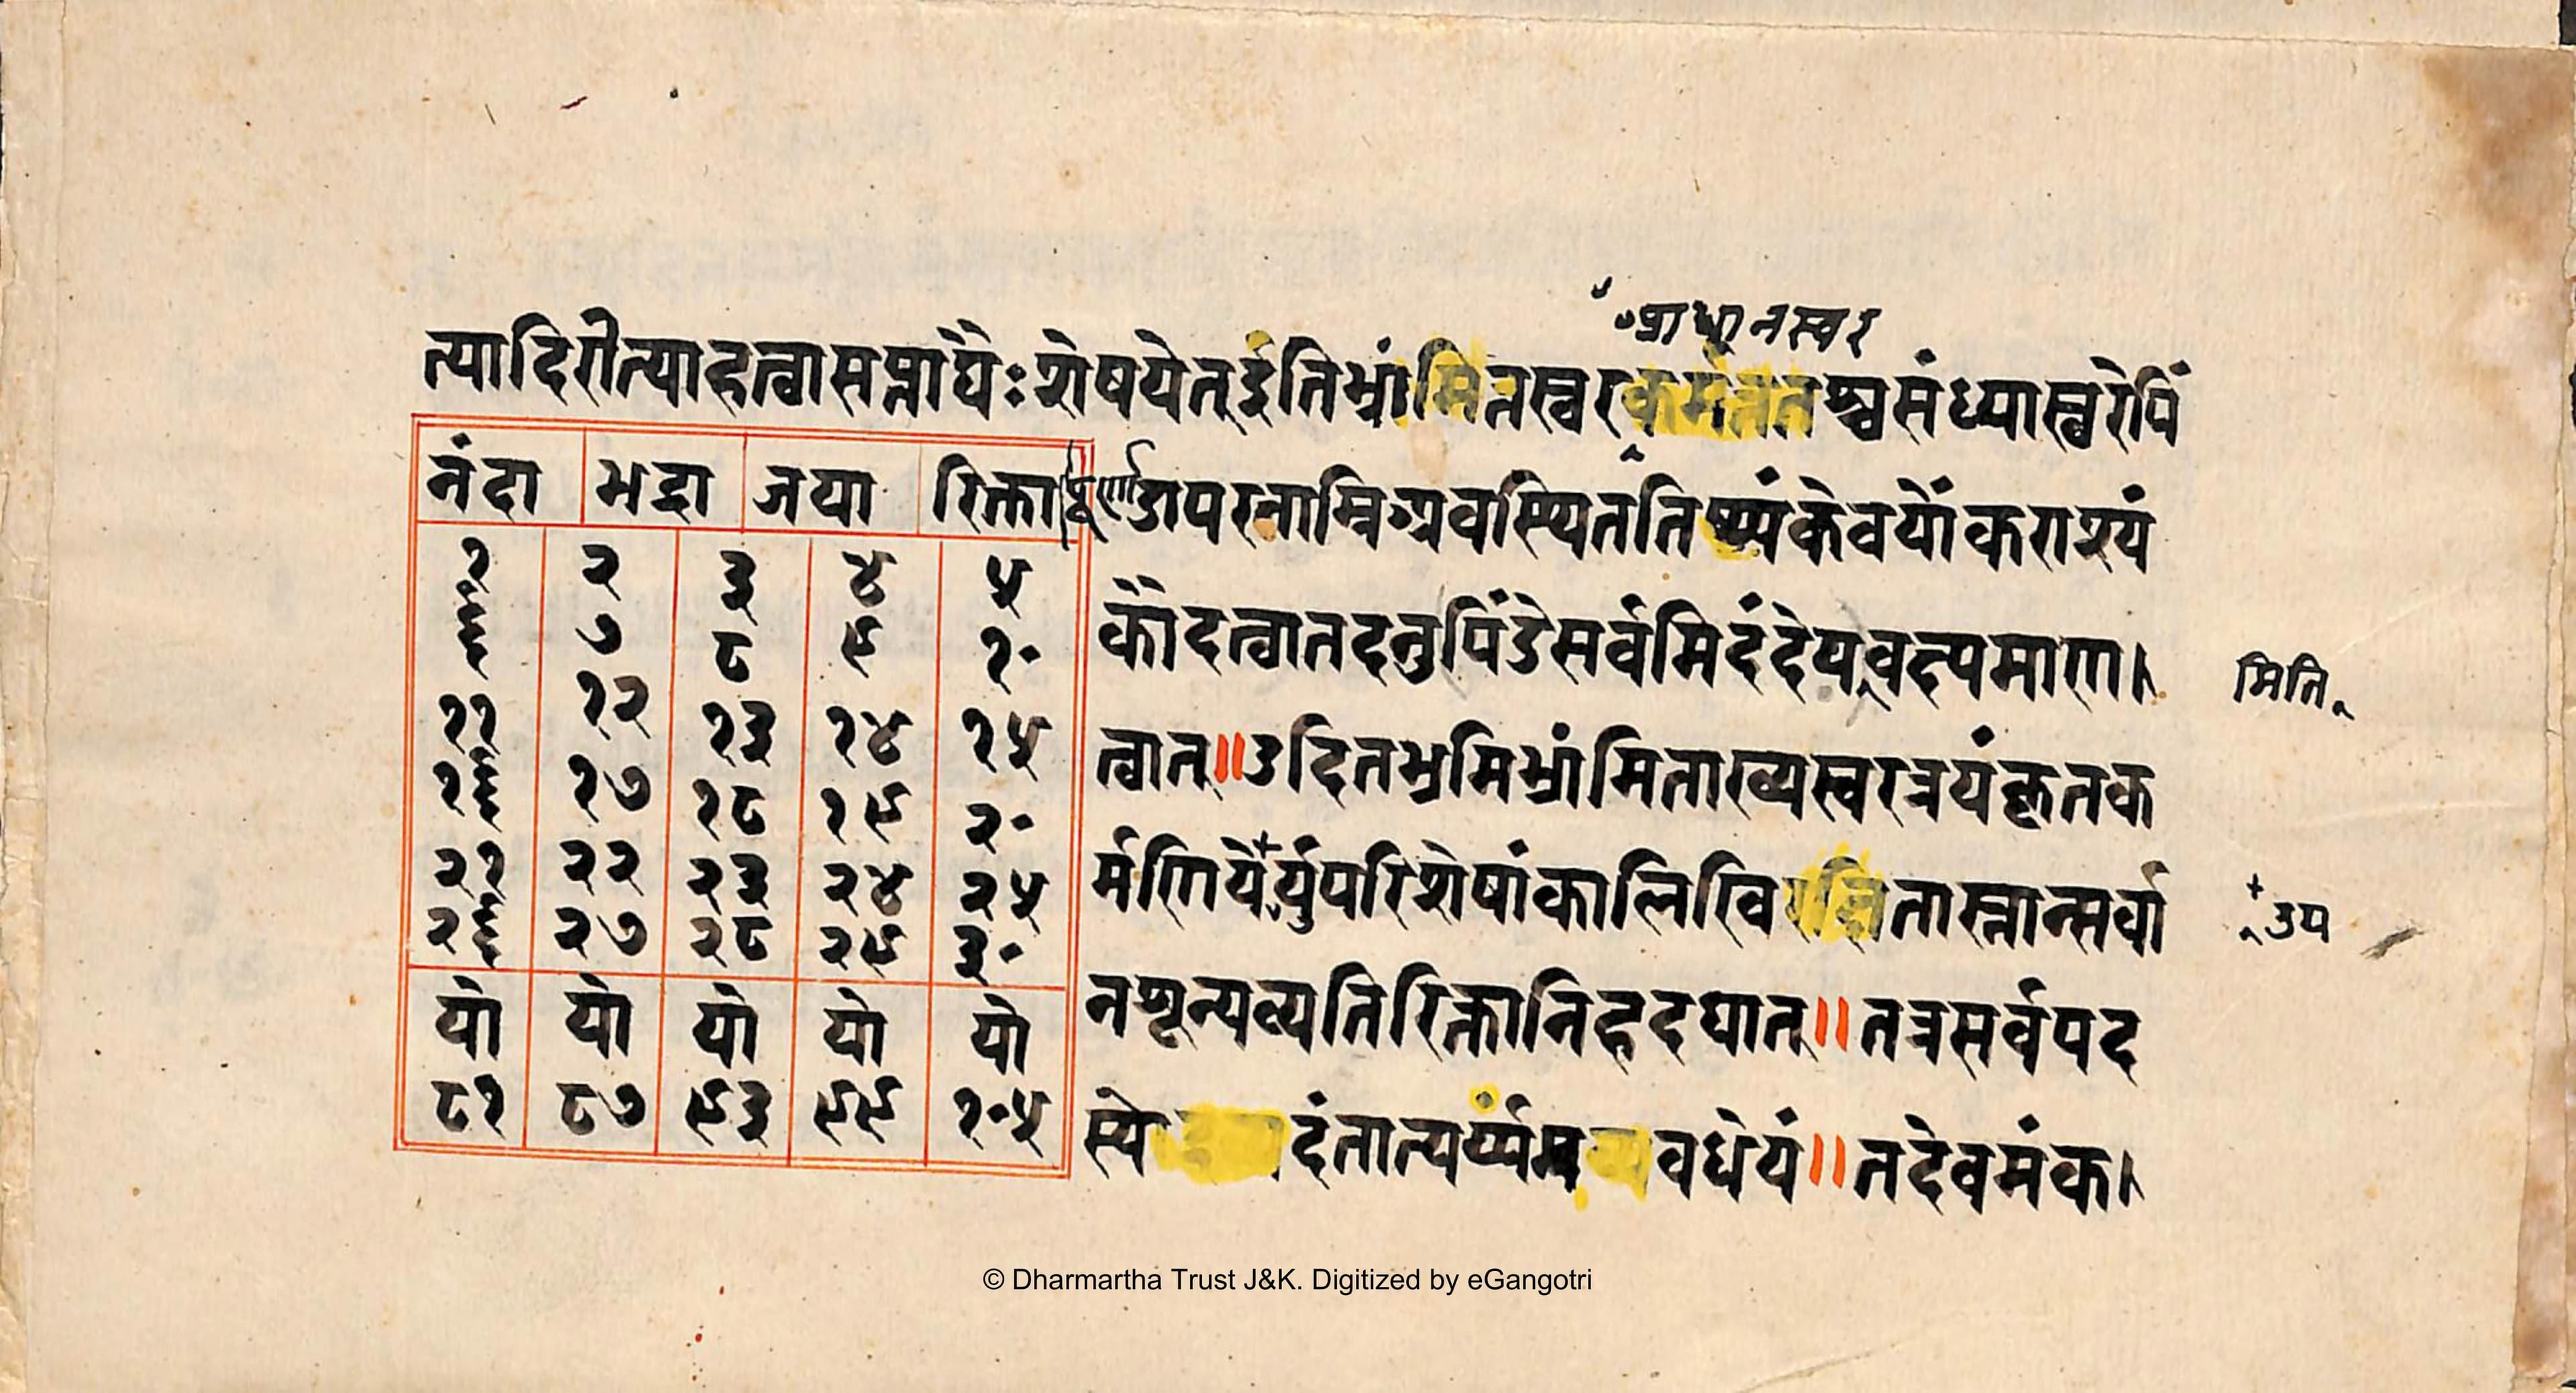 प्राधानस्वर
त्यादिरीत्याहत्वासप्तार्घैःशेषयेत्इतिभ्रांमितस्वरकर्मततश्चसंध्यास्वरेपिं
नंदा भद्रा जया रिक्ता पूर्णा
डापरनाम्निअवस्थितति केवर्योकराश्यं
१ २ ३ ४ ५
६ ७ ८ ९ १०
११ १२ १३ १४ १५
१६ १७ १८ १९ २०
२१ २२ २३ २४ २५
२६ २७ २८ २९ ३०
यो यो यो यो यो
८१ ८७ ९३ ९९ १०५
कौदत्वातदनुपिंडेसर्वमिदंदेयवक्ष्यमाण।
मिति
त्वात्॥उदितभ्रमिभ्रांमिताख्यस्वरत्रयंकृतक
र्मणियैर्युपरिशेषांकालिखि तास्तान्सर्वा
उप
नशून्यव्यतिरिक्तानिहदघात्॥तत्रसर्वपद
स्ये दंतात्पर्य्यम वधेयं॥तदेवमंक।
© Dharmartha Trust J&K. Digitized by eGangotri